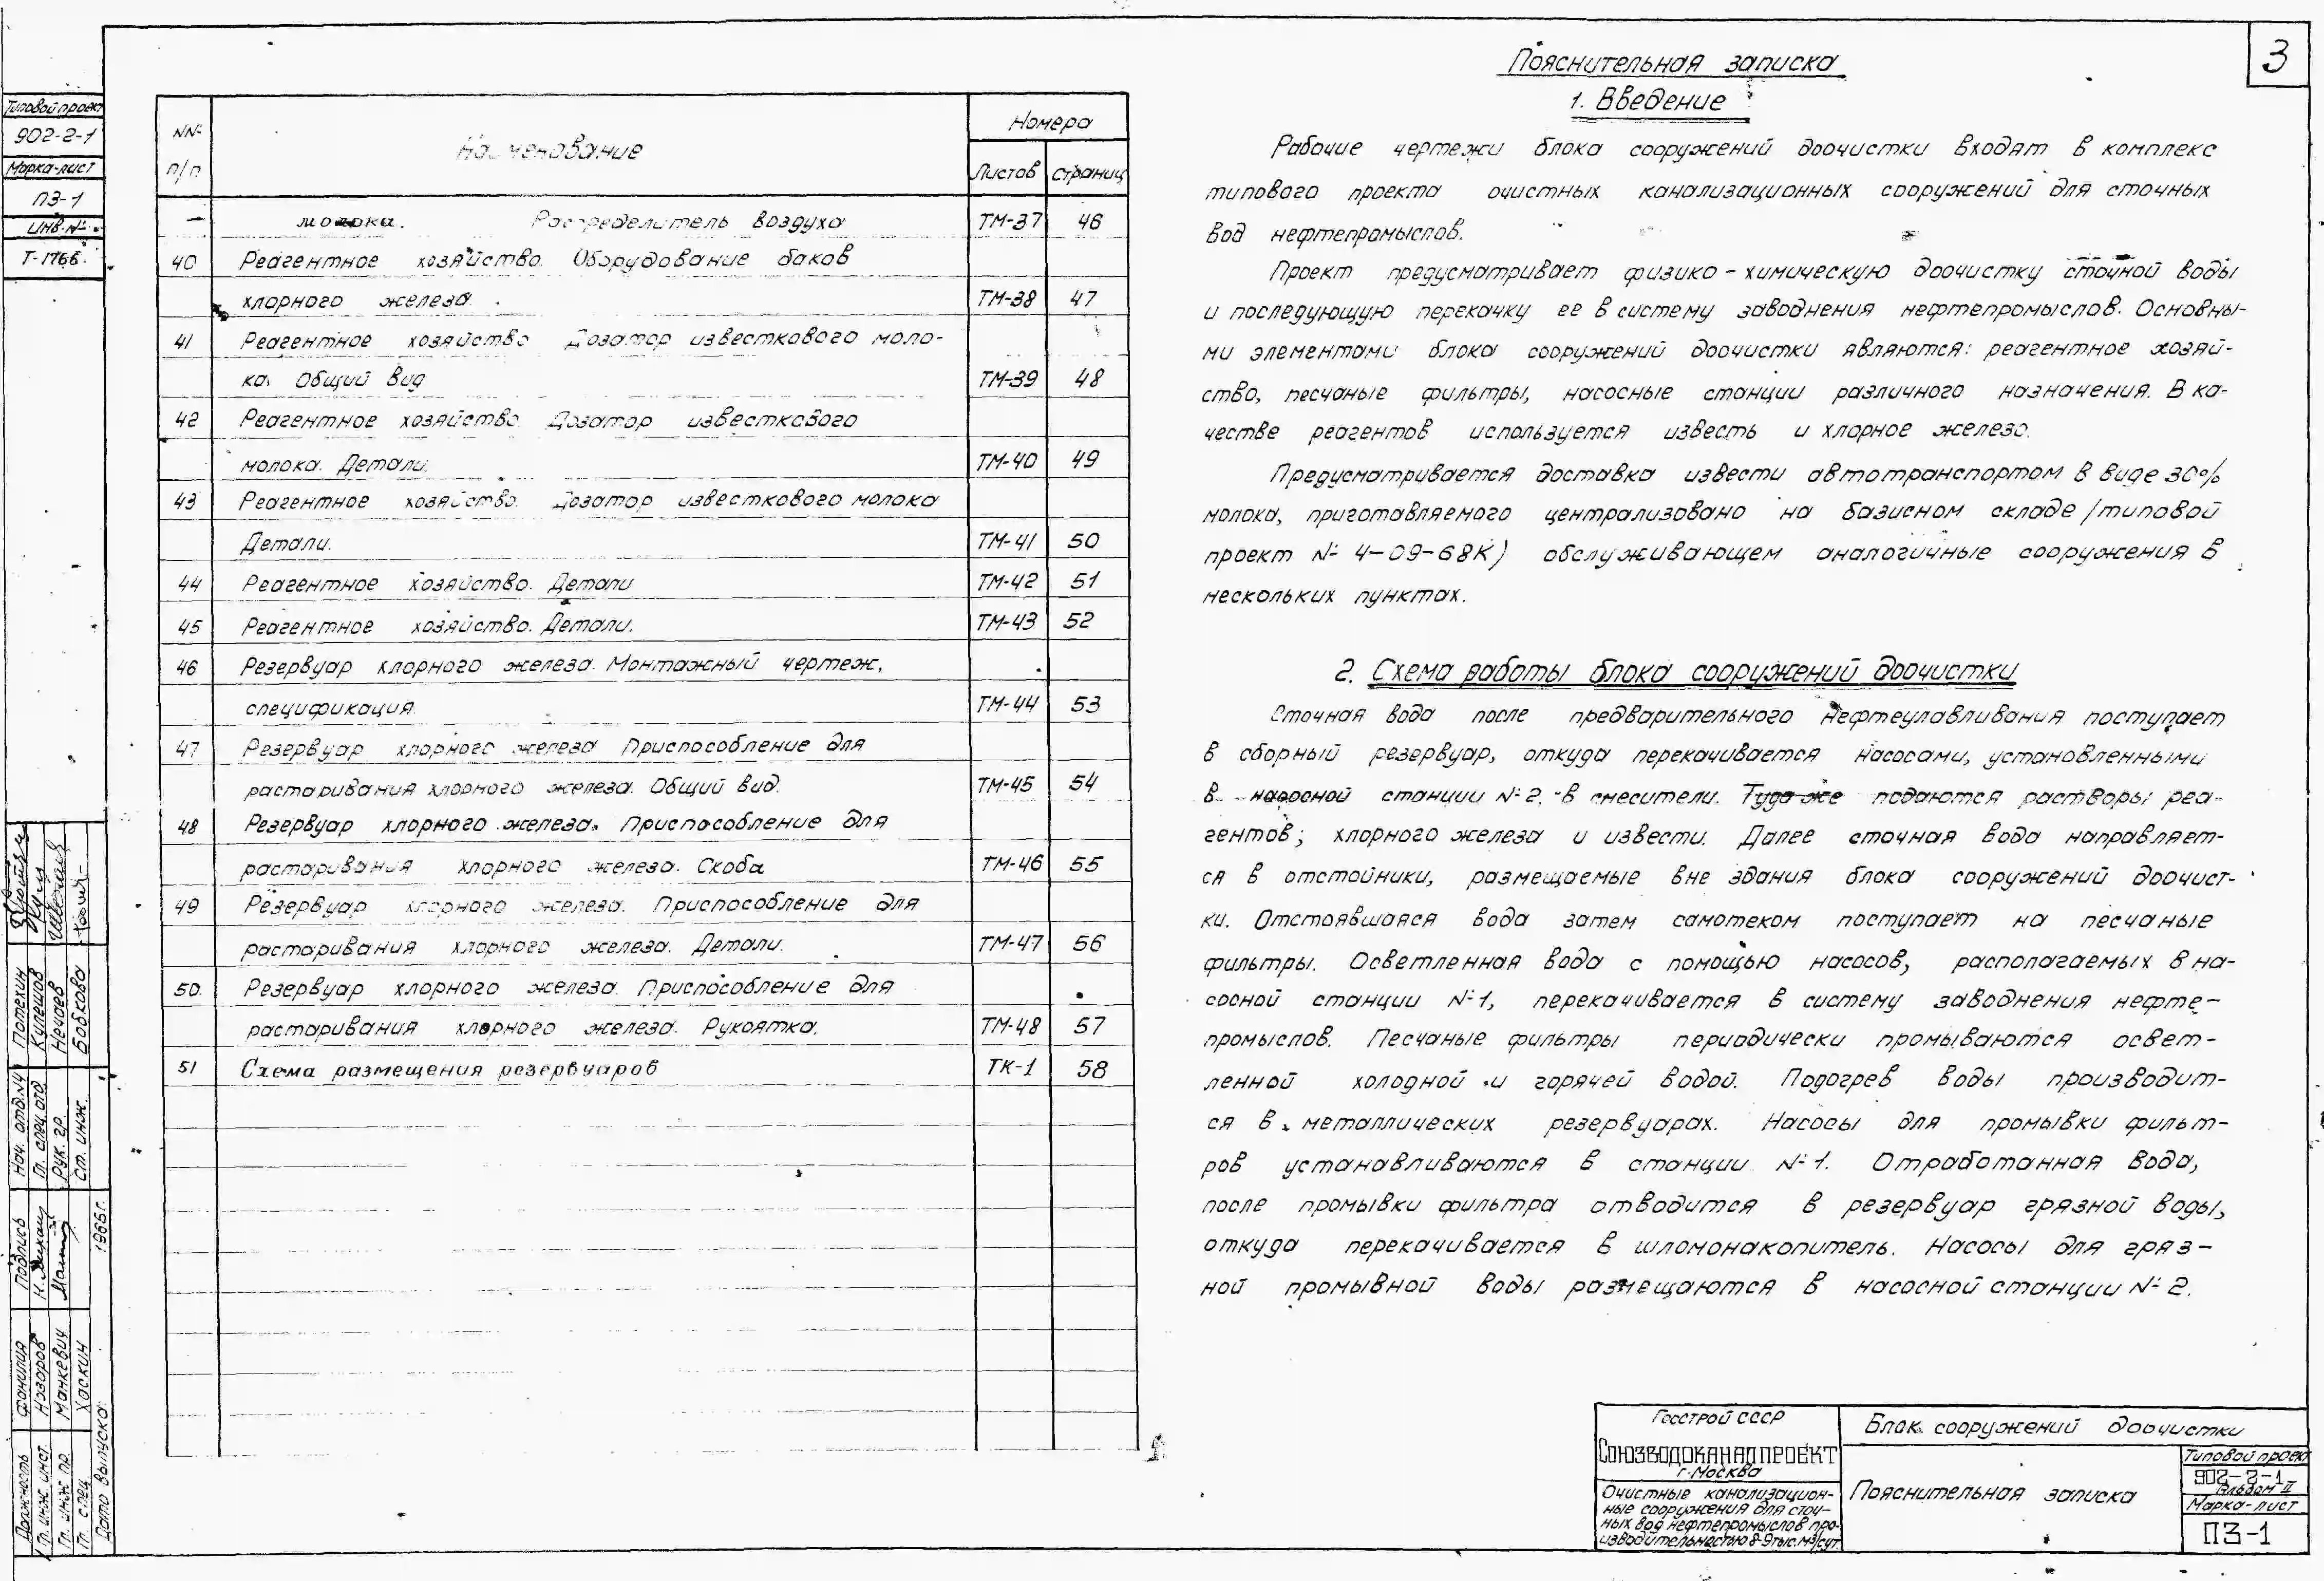 3
Типовой проект
902-2-1
Марка-лист
ПЗ-1
Инв. №
Т-1766
NN
п/п
Наименование
Номера
Листов
страниц
— молока. Распределитель воздуха ТМ-37 46
40 Реагентное хозяйство. Оборудование баков
хлорного железа. ТМ-38 47
41 Реагентное хозяйство Дозатор известкового моло-
ка. Общий вид ТМ-39 48
42 Реагентное хозяйство. Дозатор известкового
молока. Детали. ТМ-40 49
43 Реагентное хозяйство. Дозатор известкового молока
Детали. ТМ-41 50
44 Реагентное хозяйство. Детали ТМ-42 51
45 Реагентное хозяйство. Детали. ТМ-43 52
46 Резервуар хлорного железа. Монтажный чертеж,
спецификация. ТМ-44 53
47 Резервуар хлорного железа Приспособление для
растаривания хлорного железа. Общий вид. ТМ-45 54
48 Резервуар хлорного железа. Приспособление для
растаривания хлорного железа. Скоба ТМ-46 55
49 Резервуар хлорного железа. Приспособление для
растаривания хлорного железа. Детали. ТМ-47 56
50. Резервуар хлорного железа. Приспособление для
растаривания хлорного железа. Рукоятка. ТМ-48 57
51 Схема размещения резервуаров ТК-1 58
Пояснительная записка
1. Введение
Рабочие чертежи блока сооружений доочистки входят в комплекс
типового проекта очистных канализационных сооружений для сточных
вод нефтепромыслов.
Проект предусматривает физико-химическую доочистку сточной воды
и последующую перекачку ее в систему заводнения нефтепромыслов. Основны-
ми элементами блока сооружений доочистки являются: реагентное хозяй-
ство, песчаные фильтры, насосные станции различного назначения. В ка-
честве реагентов используется известь и хлорное железо.
Предусматривается доставка извести автотранспортом в виде 30%
молока, приготавляемого централизовано на базисном складе /типовой
проект № 4-09-68К) обслуживающем аналогичные сооружения в
нескольких пунктах.
2. Схема работы блока сооружений доочистки
Сточная вода после предварительного нефтеулавливания поступает
в сборный резервуар, откуда перекачивается насосами, установленными
в насосной станции № 2, в смесители. Туда же подаются растворы реа-
гентов; хлорного железа и извести. Далее сточная вода направляет-
ся в отстойники, размещаемые вне здания блока сооружений доочист-
ки. Отстоявшаяся вода затем самотеком поступает на песчаные
фильтры. Осветленная вода с помощью насосов, располагаемых в на-
сосной станции №1, перекачивается в систему заводнения нефте-
промыслов. Песчаные фильтры периодически промываются освет-
ленной холодной и горячей водой. Подогрев воды производит-
ся в металлических резервуарах. Насосы для промывки фильт-
ров устанавливаются в станции №1. Отработанная вода,
после промывки фильтра отводится в резервуар грязной воды,
откуда перекачивается в шломонакопитель. Насосы для гряз-
ной промывной воды размещаются в насосной станции № 2.
Потехин
Кулешов
Нечаев
Бобкова
Нач. отд. №4
Гл. спец. отд.
Рук. гр.
Ст. инж.
Подпись
1966г.
Фамилия
Назаров
Манкевич
Хаскин
Должность
Гл. инж. инст.
Гл. инж. пр.
Гл. спец.
Дата выпуска:
Госстрой СССР
СОЮЗВОДОКАНАЛПРОЕКТ
г. Москва
Очистные канализацион-
ные сооружения для сточ-
ных вод нефтепромыслов про-
изводительностью 8-9 тыс. м³/сут.
Блок сооружений доочистки
Пояснительная записка
Типовой проект
902-2-1
Альбом II
Марка-лист
ПЗ-1